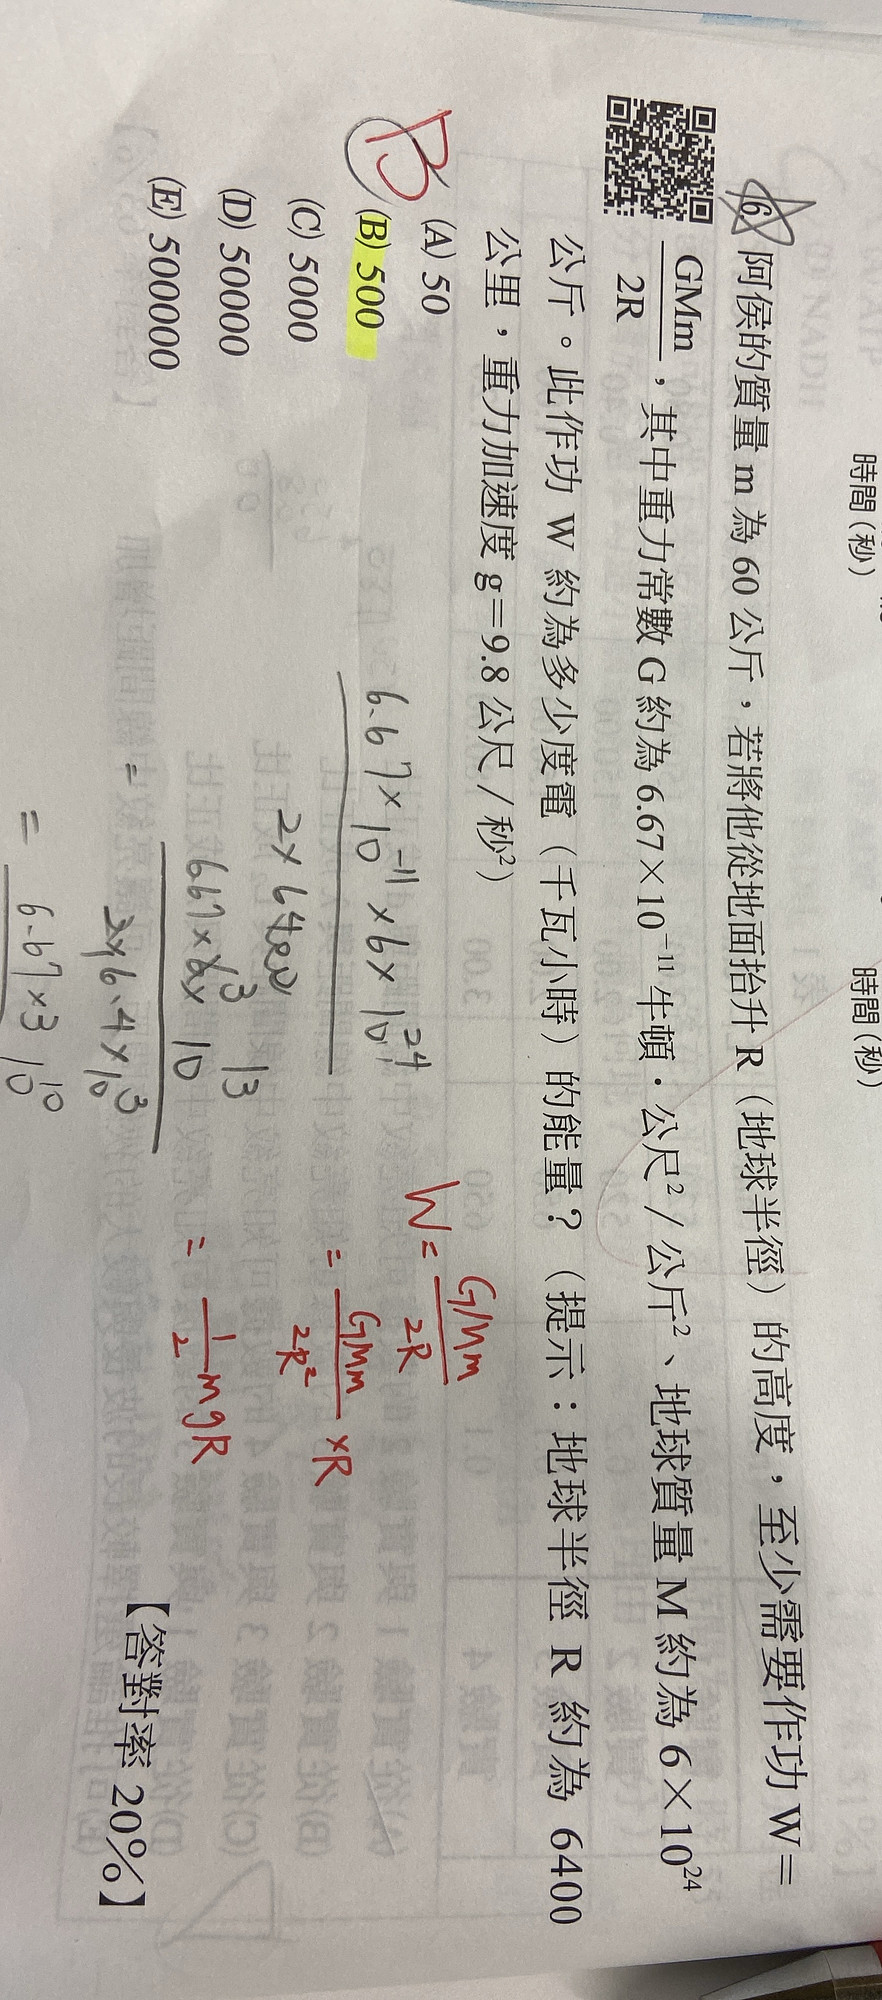 時間(秒)
時間(秒)
6. 阿侯的質量 m 為 60 公斤，若將他從地面抬升 R（地球半徑）的高度，至少需要作功 W＝
GMm
2R
，其中重力常數 G 約為 6.67×10⁻¹¹ 牛頓．公尺²／公斤²、地球質量 M 約為 6×10²⁴
公斤。此作功 W 約為多少度電（千瓦小時）的能量？（提示：地球半徑 R 約為 6400
公里，重力加速度 g＝9.8 公尺／秒²）
(A) 50
B
(B) 500
(C) 5000
(D) 50000
(E) 500000
【答對率 20%】
6.67×10⁻¹¹×6×10²⁴
2×6400
=
6.67×6×10¹³
3
2×6.4×10³
=
6.67×3 10¹⁰
W = GMm
2R
= GMm
2R²
×R
= 1
2
mgR